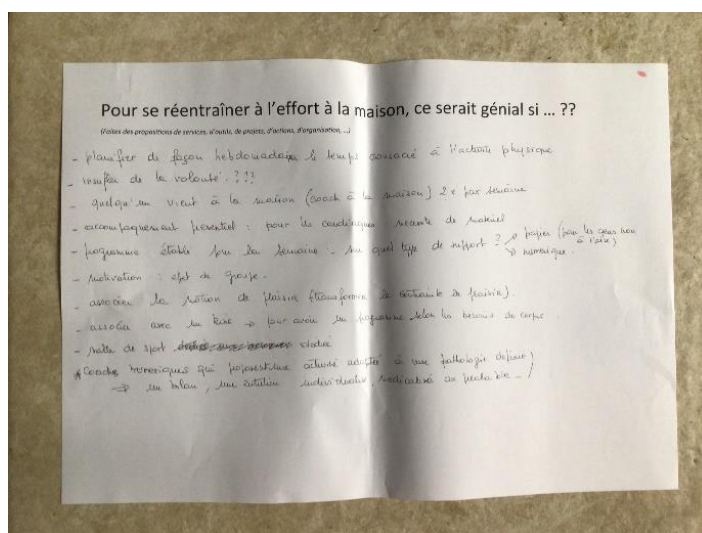 Pour se réentraîner à l'effort à la maison, ce serait génial si ... ??
(Faites des propositions de services, d'outils, de projets, d'actions, d'organisation, ...)
- planifier de façon hebdomadaire le temps consacré à l'activité physique
- insuffler de la volonté. ???
- quelqu'un vient à la maison (coach à la maison) 2x par semaine
- accompagnement présentiel : pour les cardiaques de matériel
- programme établi pour la semaine - sur quel type de support ? → papier (pour les gens non à l'aise)
→ numérique.
- motivation : effet de groupe.
- associer la notion de plaisir (transformer la contrainte en plaisir).
- associer avec un kiné → pour avoir un programme selon les besoins du corps.
- salle de sport
* Coachs numériques qui proposent une activité adaptée à une pathologie définie)
→ un bilan, une individualisé, médicalisé au préalable -)